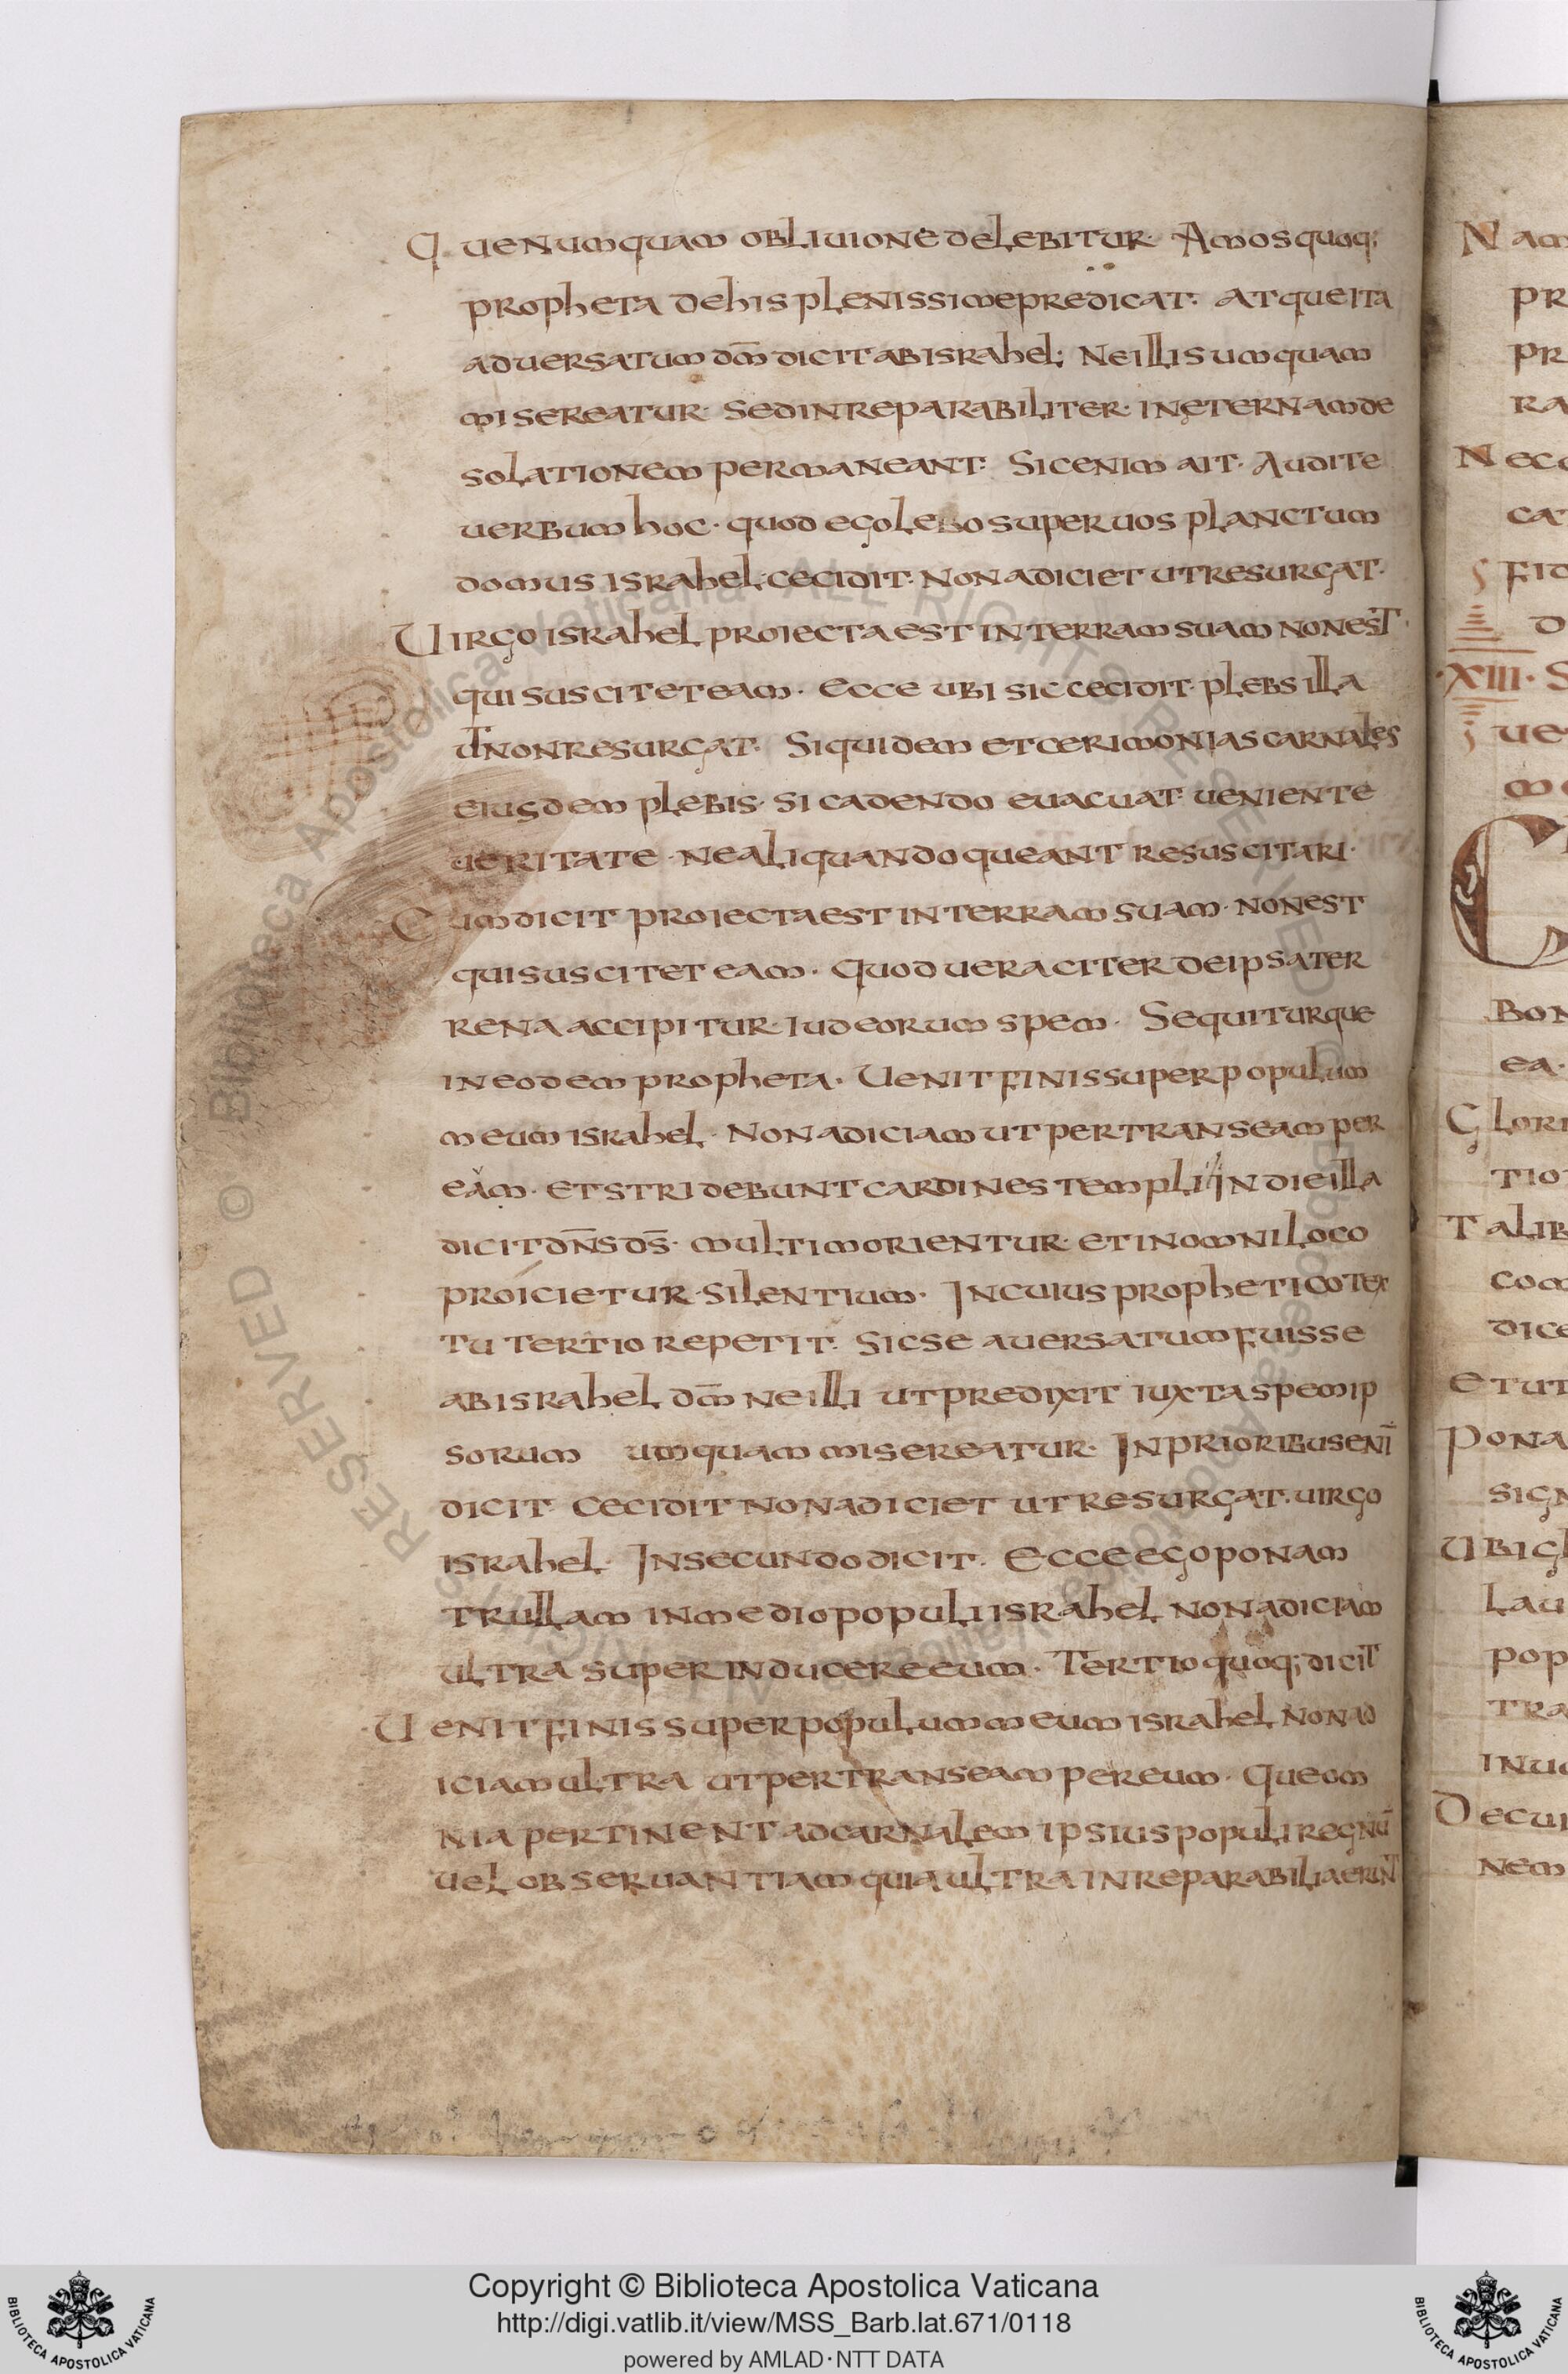 Quenumquam obliuione delebitur. Amos quoq;
propheta de his plenissime predicat. Atque ita
aduersatum dm̄ dicit ab israhel; Ne illis umquam
misereatur. sed inreparabiliter. in ęternam de
solationem permaneant. Sic enim ait. Audite
uerbum hoc. quod ego lebo super uos planctum
domus israhel. cecidit. non adiciet ut resurgat.
Uirgo israhel proiecta est in terram suam non est
qui suscitet eam. Ecce ubi sic cecidit plebs illa
ut non resurgat. Siquidem et cerimonias carnales
eiusdem plebis. si cadendo euacuat ueniente
ueritate. ne aliquando queant resuscitari.
Cum dicit proiecta est in terram suam. non est
qui suscitet eam. Quod ueraciter de ipsa ter
rena accipitur. iudeorum spem. Sequiturque
in eodem propheta. Uenit finis super populum
meum israhel. Non adiciam ut pertranseam per
eam. et stridebunt cardines templi in die illa
dicit dn̄s ds̄. multi morientur. et in omni loco
proicietur silentium. In cuius prophetico tex
tu tertio repetit. sic se auersatum fuisse
ab israhel dm̄ ne illi ut predixit iuxta spem ip
sorum umquam misereatur. In prioribus eni̅
dicit. Cecidit non adiciet ut resurgat. uirgo
israhel. In secundo dicit. Ecce ego ponam
trullam in medio populi israhel non adiciam
ultra superinducere eum. Tertio quoq; dicit
Uenit finis super populum meum israhel non ad
iciam ultra ut pertranseam per eum. Que om
nia pertinent ad carnalem ipsius populi regnu̅
uel obseruantiam quia ultra inreparabilia erunt
Nam
pr
pr
ra
Nec
ca
fid
d
·XIII· S
ue
m
C
bon
ea.
Glori
tio
Talib
com
dice
Et ut
Pona
sign
Ubi gl
lau
pop
tra
inuo
Decur
nem
Copyright © Biblioteca Apostolica Vaticana
http://digi.vatlib.it/view/MSS_Barb.lat.671/0118
powered by AMLAD·NTT DATA
BIBLIOTECA APOSTOLICA VATICANA
BIBLIOTECA APOSTOLICA VATICANA